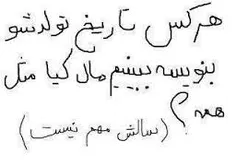 هرکس تاریخ تولدشو
بنویسه ببینیم مال کیا مثل
همه؟
(سالش مهم نیست)